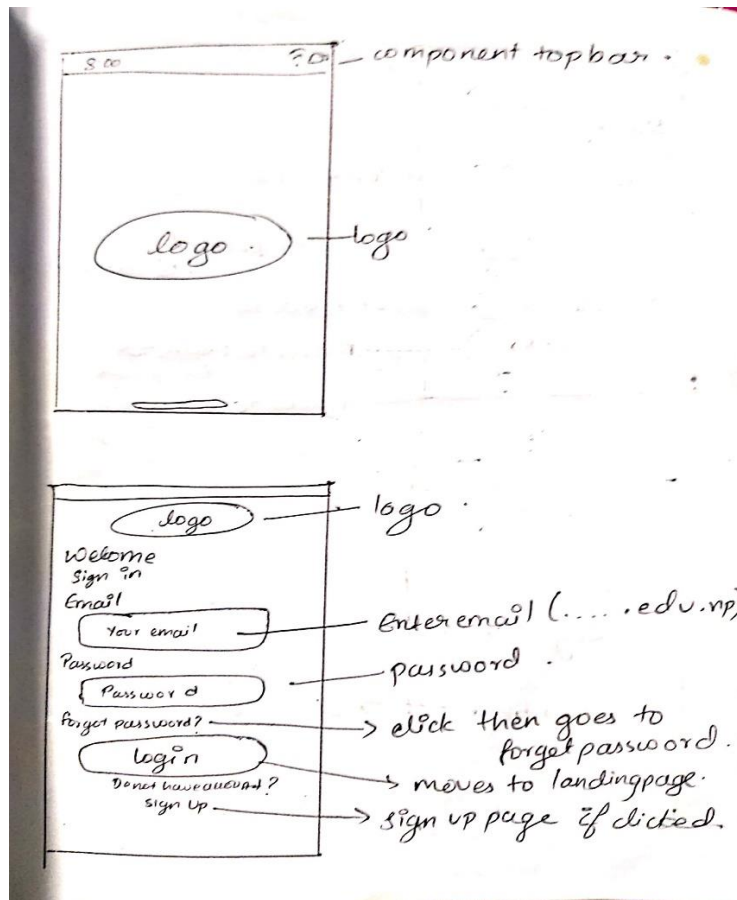 8:00
component topbar.
logo
logo
logo
logo
Welcome
Sign in
Email
Your email
Enter email (.....edu.np)
Password
Password
password.
Forgot password?
click then goes to
forget password.
login
moves to landingpage.
Do not have account?
sign up
sign up page if clicked.